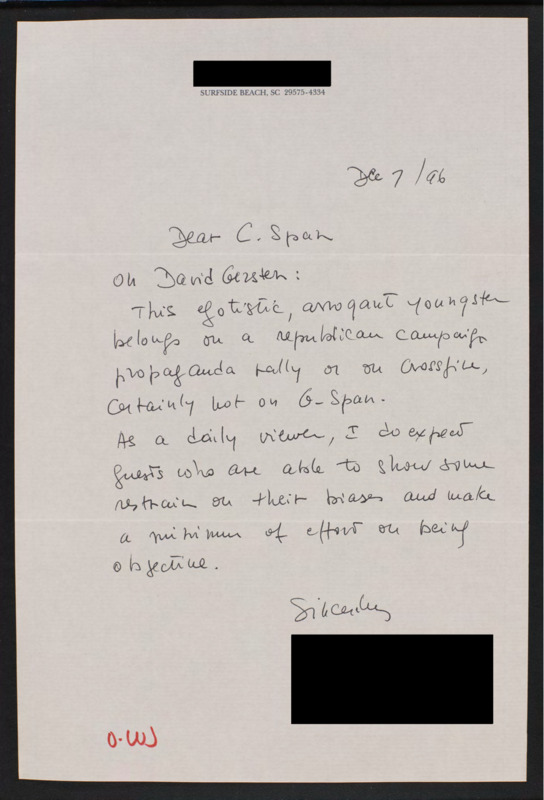 SURFSIDE BEACH, SC 29575-4334
Dec 7/96
Dear C. Span
on David Gersten:
This egotistic, arrogant youngster
belongs on a republican campaign
propaganda rally or on Crossfire,
Certainly not on C-Span.
As a daily viewer, I do expect
guests who are able to show some
restrain on their biases and make
a minimum of effort on being
objective.
Sincerely